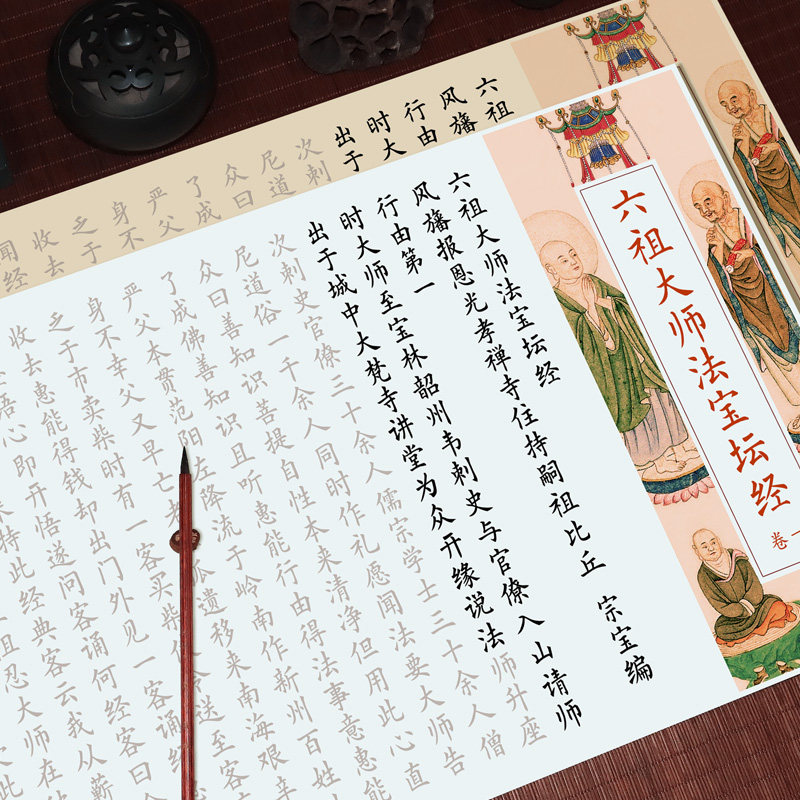 六祖
风旛
行由
时大
出于
次刺
尼道
众曰
了成
严父
身不
乏于
收去
闻经
六祖大师法宝坛经
卷一
六祖大师法宝坛经
风旛报恩光孝禅寺住持嗣祖比丘 宗宝编
行由第一
时大师至宝林韶州韦刺史与官僚入山请师
出于城中大梵寺讲堂为众开缘说法师升座
次刺史官僚三十余人儒宗学士三十余人僧
尼道俗一千余人同时作礼愿闻法要大师告
众曰善知识菩提自性本来清净但用此心直
了成佛善知识且听惠能行由得法事意惠能
严父本贯范阳左降流于岭南作新州百姓
身不幸父又早亡老孤遗移来南海艰辛
乏于市卖柴时有一客买柴令送至客
收去惠能得钱却出门外见一客诵经
语心即开悟遂问客诵何经客曰
来持此经典客云我从蕲
祖忍大师在
此